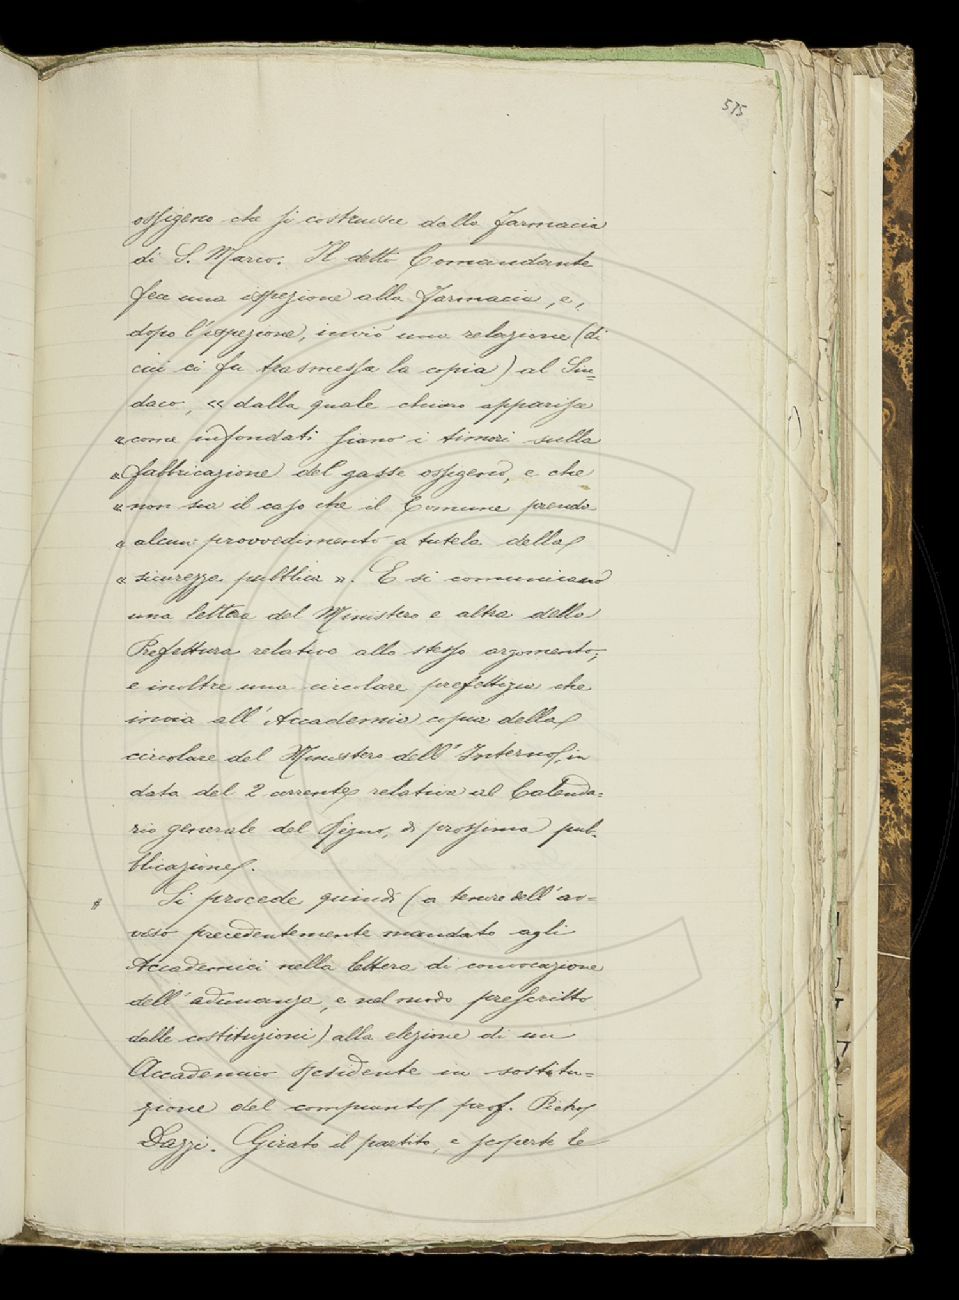 575
ossigeno che si costruisce dalla Farmacia
di S. Marco. Il detto Comandante
fece una ispezione alla Farmacia, e,
dopo l'ispezione, inviò una relazione (di
cui ci fu trasmessa la copia) al Sin=
daco, « dalla quale chiaro apparisce
« come infondati siano i timori sulla
« fabbricazione del gasse ossigeno, e che
« non sia il caso che il Comune prenda
« alcun provvedimento a tutela della
« sicurezza pubblica ». E si comunicano
una lettera del Ministero e altra della
Prefettura relative allo stesso argomento;
e inoltre una circolare prefettizia che
invia all'Accademia copia della
circolare del Ministero dell'Interno, in
data del 2 corrente, relativa al Calenda=
rio generale del Regno, di prossima pub-
blicazione.
Si procede quindi (a tenore dell'av=
viso precedentemente mandato agli
Accademici nella lettera di convocazione
dell'adunanza, e nel modo prescritto
dalle costituzioni) alla elezione di un
Accademico residente in sostitu=
zione del compianto prof. Pietro
Dazzi. Girato il partito, e scoperte le